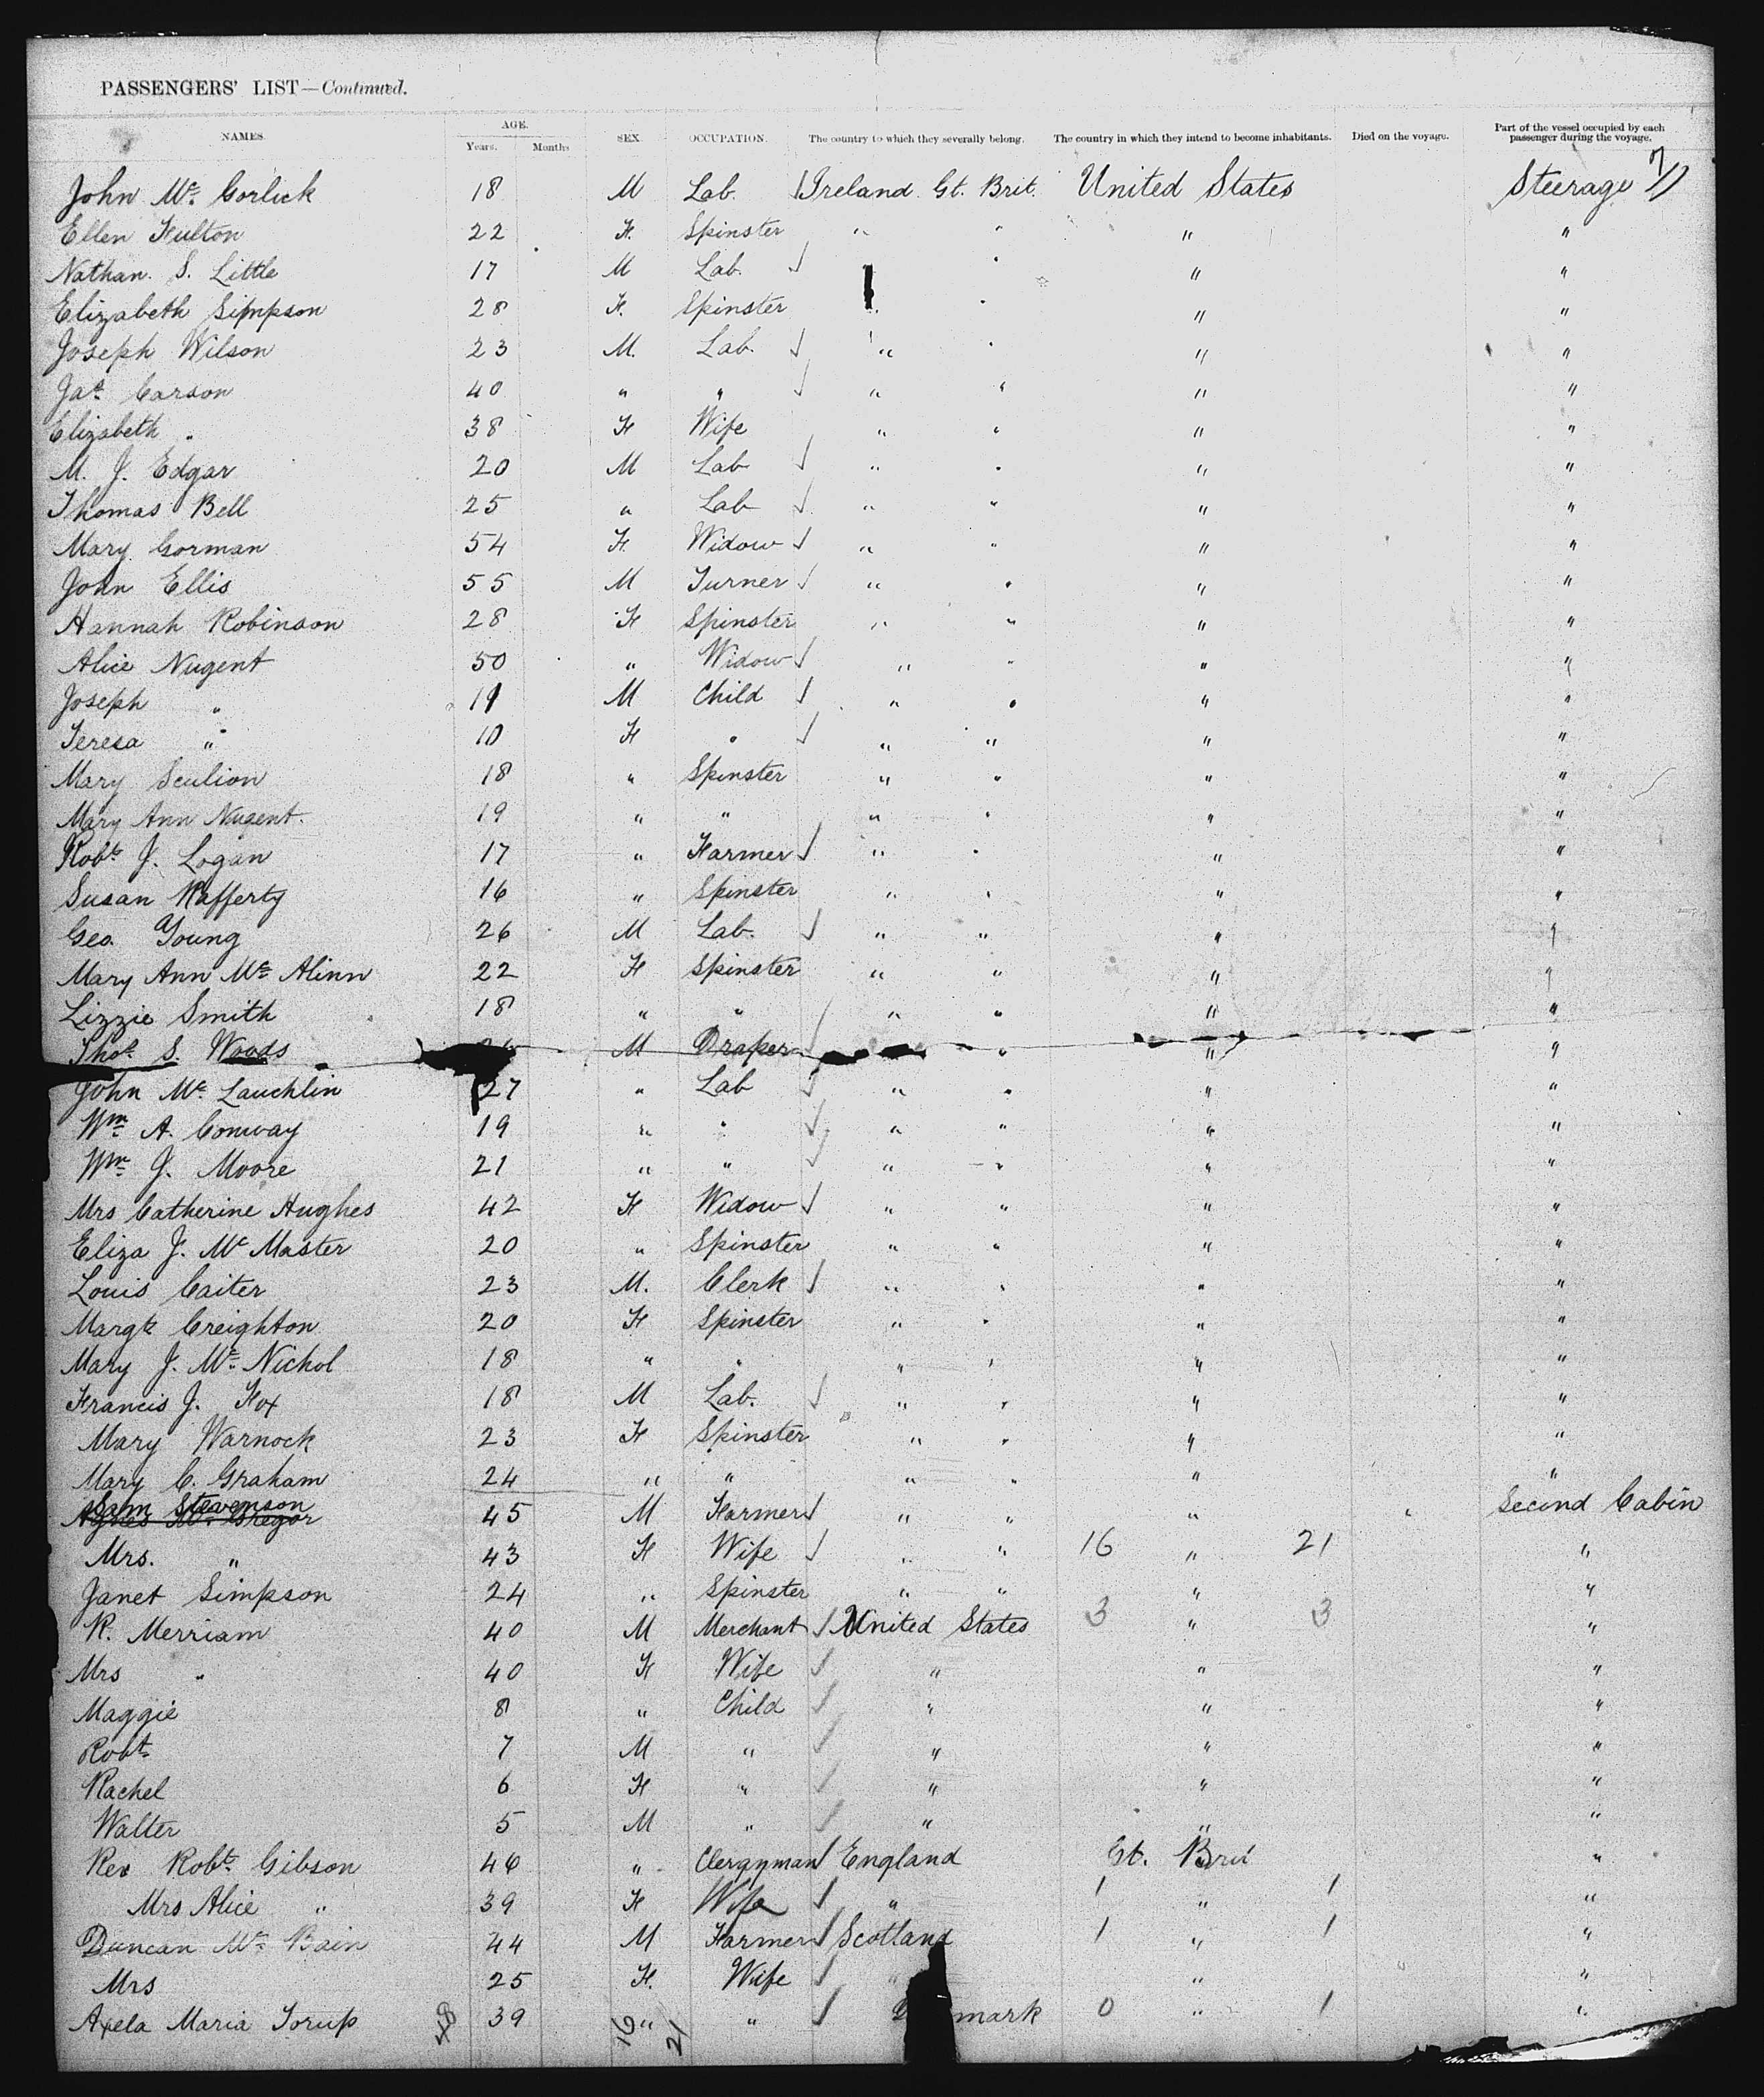 PASSENGERS' LIST—Continued.
NAMES. AGE. Years. Months SEX. OCCUPATION. The country to which they severally belong. The country in which they intend to become inhabitants. Died on the voyage. Part of the vessel occupied by each passenger during the voyage.
John Mc Gorlick 18 M Lab. Ireland Gt. Brit. United States Steerage
Ellen Fulton 22 F. Spinster " " " "
Nathan. S. Little 17 M Lab. " " "
Elizabeth Simpson 28 F. Spinster " " "
Joseph Wilson 23 M. Lab. " " " "
Jas. Carson 40 " " " " " "
Elizabeth " 38 F Wife " " " "
M. J. Edgar 20 M Lab " " " "
Thomas Bell 25 " Lab " " " "
Mary Gorman 54 F. Widow " " " "
John Ellis 55 M Turner " " " "
Hannah Robinson 28 F Spinster " " " "
Alice Nugent 50 " Widow " " " "
Joseph " 11 M Child " " " "
Teresa " 10 F " " " " "
Mary Scullion 18 " Spinster " " " "
Mary Ann Nugent. 19 " " " " " "
Robt J. Logan 17 " Farmer " " " "
Susan Rafferty 16 " Spinster " " " "
Geo. Young 26 M Lab. " " " "
Mary Ann Mc Alinn 22 F Spinster " " " "
Lizzie Smith 18 " " " " " "
Thos. S. Woods M Draper " " "
John Mc Lauchlin 27 " Lab " " " "
Wm A. Conway 19 " " " " " "
Wm J. Moore 21 " " " " " "
Mrs Catherine Hughes 42 F Widow " " " "
Eliza J. Mc Master 20 " Spinster " " " "
Louis Caiter 23 M. Clerk " " " "
Margt Creighton 20 F Spinster " " " "
Mary J. Mc Nichol 18 " " " " " "
Francis J. Fox 18 M Lab. " " " "
Mary Warnock 23 F Spinster " " " "
Mary C. Graham 24 " " " " " "
Sam Stevenson
Agnes Mc Gregor 45 M Farmer " " " Second Cabin
Mrs. " 43 F Wife " " 16 " 21 "
Janet Simpson 24 " Spinster " " " "
R. Merriam 40 M Merchant United States 3 " 3 "
Mrs " 40 F Wife " " "
Maggie 8 " Child " " "
Robt. 7 M " " " "
Rachel 6 F " " " "
Walter 5 M " " " "
Rev Robt. Gibson 46 " Clergyman England Gt. Bri "
Mrs Alice " 39 F Wife " 1 " 1 "
Duncan Mc Bain 44 M Farmer Scotland 1 " 1 "
Mrs 25 F. Wife " " "
Axela Maria Torup 48 39 16 " 21 " mark 0 " 1 "